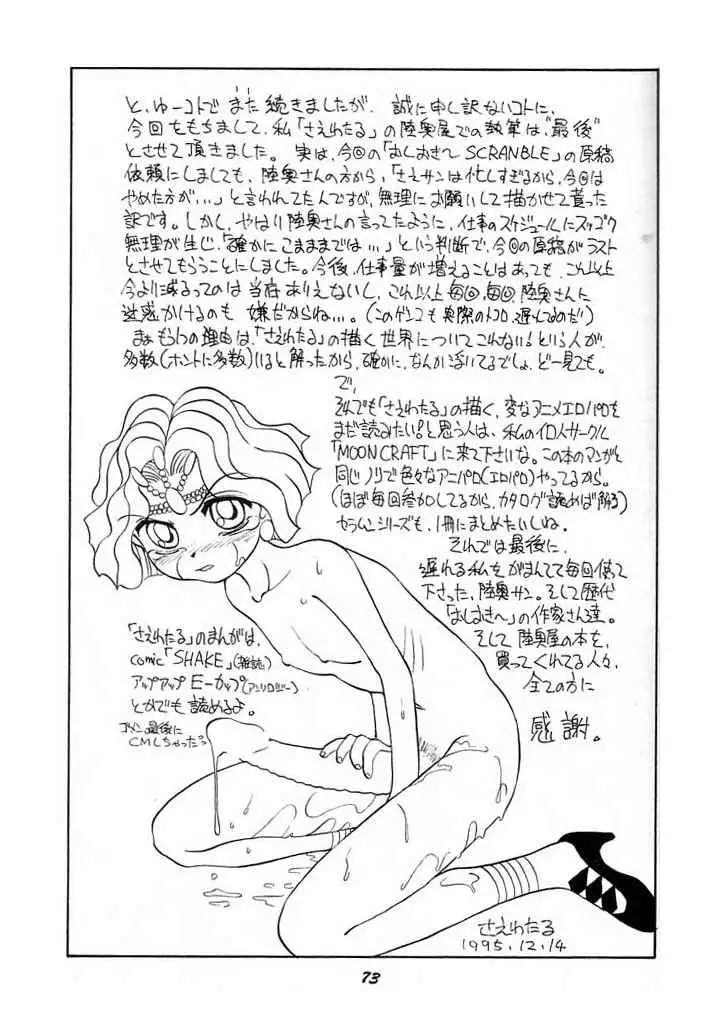 と、ゆーコトでまた続きましたが、誠に申し訳ないコトに、
今回をもちまして、私「さえわたる」の陸奥屋での執筆は"最後"
とさせて頂きました。実は、今回の「おしおき〜SCRANBLE」の原稿
依頼にしましても、陸奥さんの方から、「さえサンは忙しすぎるから、今回は
やめた方が…」と言われてたんですが、無理にお願いして描かせて貰った
訳です。しかし、やはり陸奥さんの言ってたように、仕事のスケジュールにスッゴク
無理が生じ、「確かにこまままでは…」という判断で、今回の原稿がラスト
とさせてもらうことにしました。今後、仕事量が増えることはあっても、これ以上
今より減るってのは当在ありえないし、これ以上毎回、毎回、陸奥さんに
迷惑かけるのも嫌だからね…。(このゲンコも実際のトコロ遅ってるのだ)
まぁもう1つの理由は、「さえわたる」の描く世界についてこれない!という人が、
多数(ホントに多数)いると解ったから、確かに、なんか浮いてるでしょ、どー見ても。
で、
それでも「さえわたる」の描く、変なアニメエロパロを
まだ読みたい!と思う人は、私の個人サークル
「MOON CRAFT」に来て下さいな。この本のマンガと
同じノリで色々なアニパロ(エロパロ)やってるから。
(ほぼ毎回参加してるから、カタログ読めば解る)
セラムンシリーズも、1冊にまとめたいしね。
それでは最後に、
遅れる私をがまんてて毎回使って
下さった、陸奥サン。そして歴代
「おしおき〜」の作家さん達。
そして陸奥屋の本を、
買ってくれてる人々、
全ての方に
感謝。
「さえわたる」のまんがは、
comic「SHAKE」(雑誌)
アップアップE-カップ(アンソロジー)
とかでも読めるよ。
ゴメン最後に
CMしちゃったっ
さえわたる
1995.12.14
73